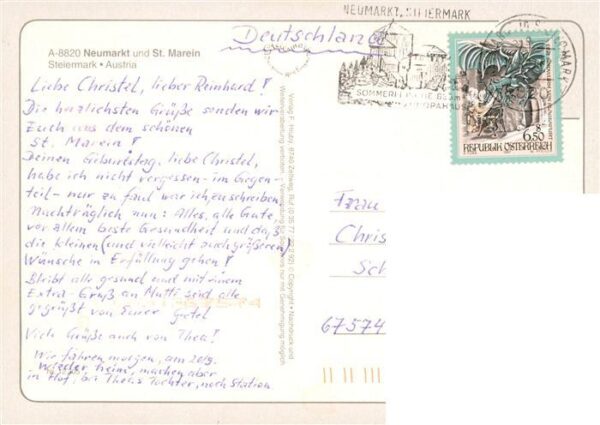 NEUMARKT, STEIERMARK
Deutschland
A-8820 Neumarkt und St. Marein
Steiermark • Austria
Liebe Christel, lieber Reinhard!
Die herzlichsten Grüße senden wir
Euch aus dem schönen
St. Marein!
Deinen Geburtstag, liebe Christel,
habe ich nicht vergessen - im Gegen-
teil - nur zu faul war ich zu schreiben.
Nachträglich nun: Alles, alle Gute,
vor allem beste Gesundheit und daß
die kleinen (und vielleicht auch größeren)
Wünsche in Erfüllung gehen!
Bleibt alle gesund und mit einem
Extra-Gruß an Mutti seid alle
gegrüßt von Eurer
Viele Grüße auch von Thea!
Wir fahren morgen, am 20/9.
wieder heim, machen aber
in Hof, bei Theas Tochter, noch Station.
Weiterverarbeitung verboten - Vervielfältigung für Sendezwecke nur mit Genehmigung möglich
© Copyright • Nachdruck und
SOMMERFRISCHE
6.50
REPUBLIK ÖSTERREICH
Frau
Chris
Sch
67574